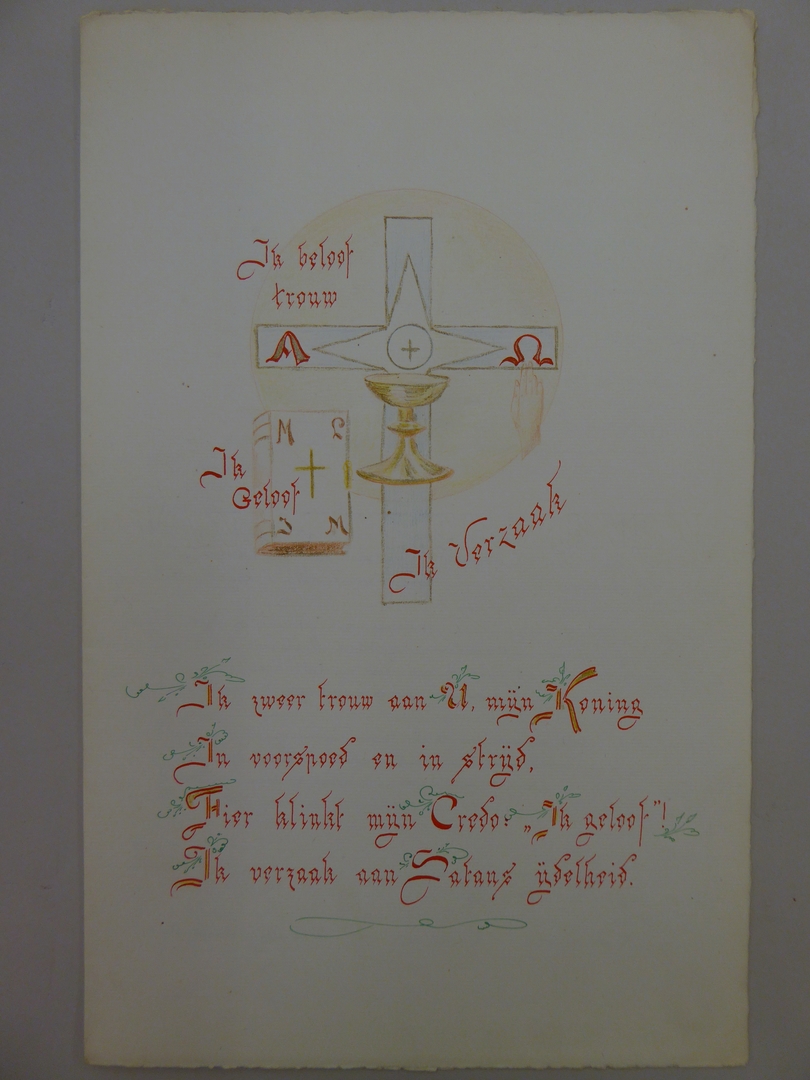 Ik beloof
trouw
Α Ω
M L
Ik
Geloof
J M
Ik Verzaak
Ik zweer trouw aan U, mijn Koning
In voorspoed en in strijd,
Fier klinkt mijn Credo: „Ik geloof"!
Ik verzaak aan Satans ijdelheid.